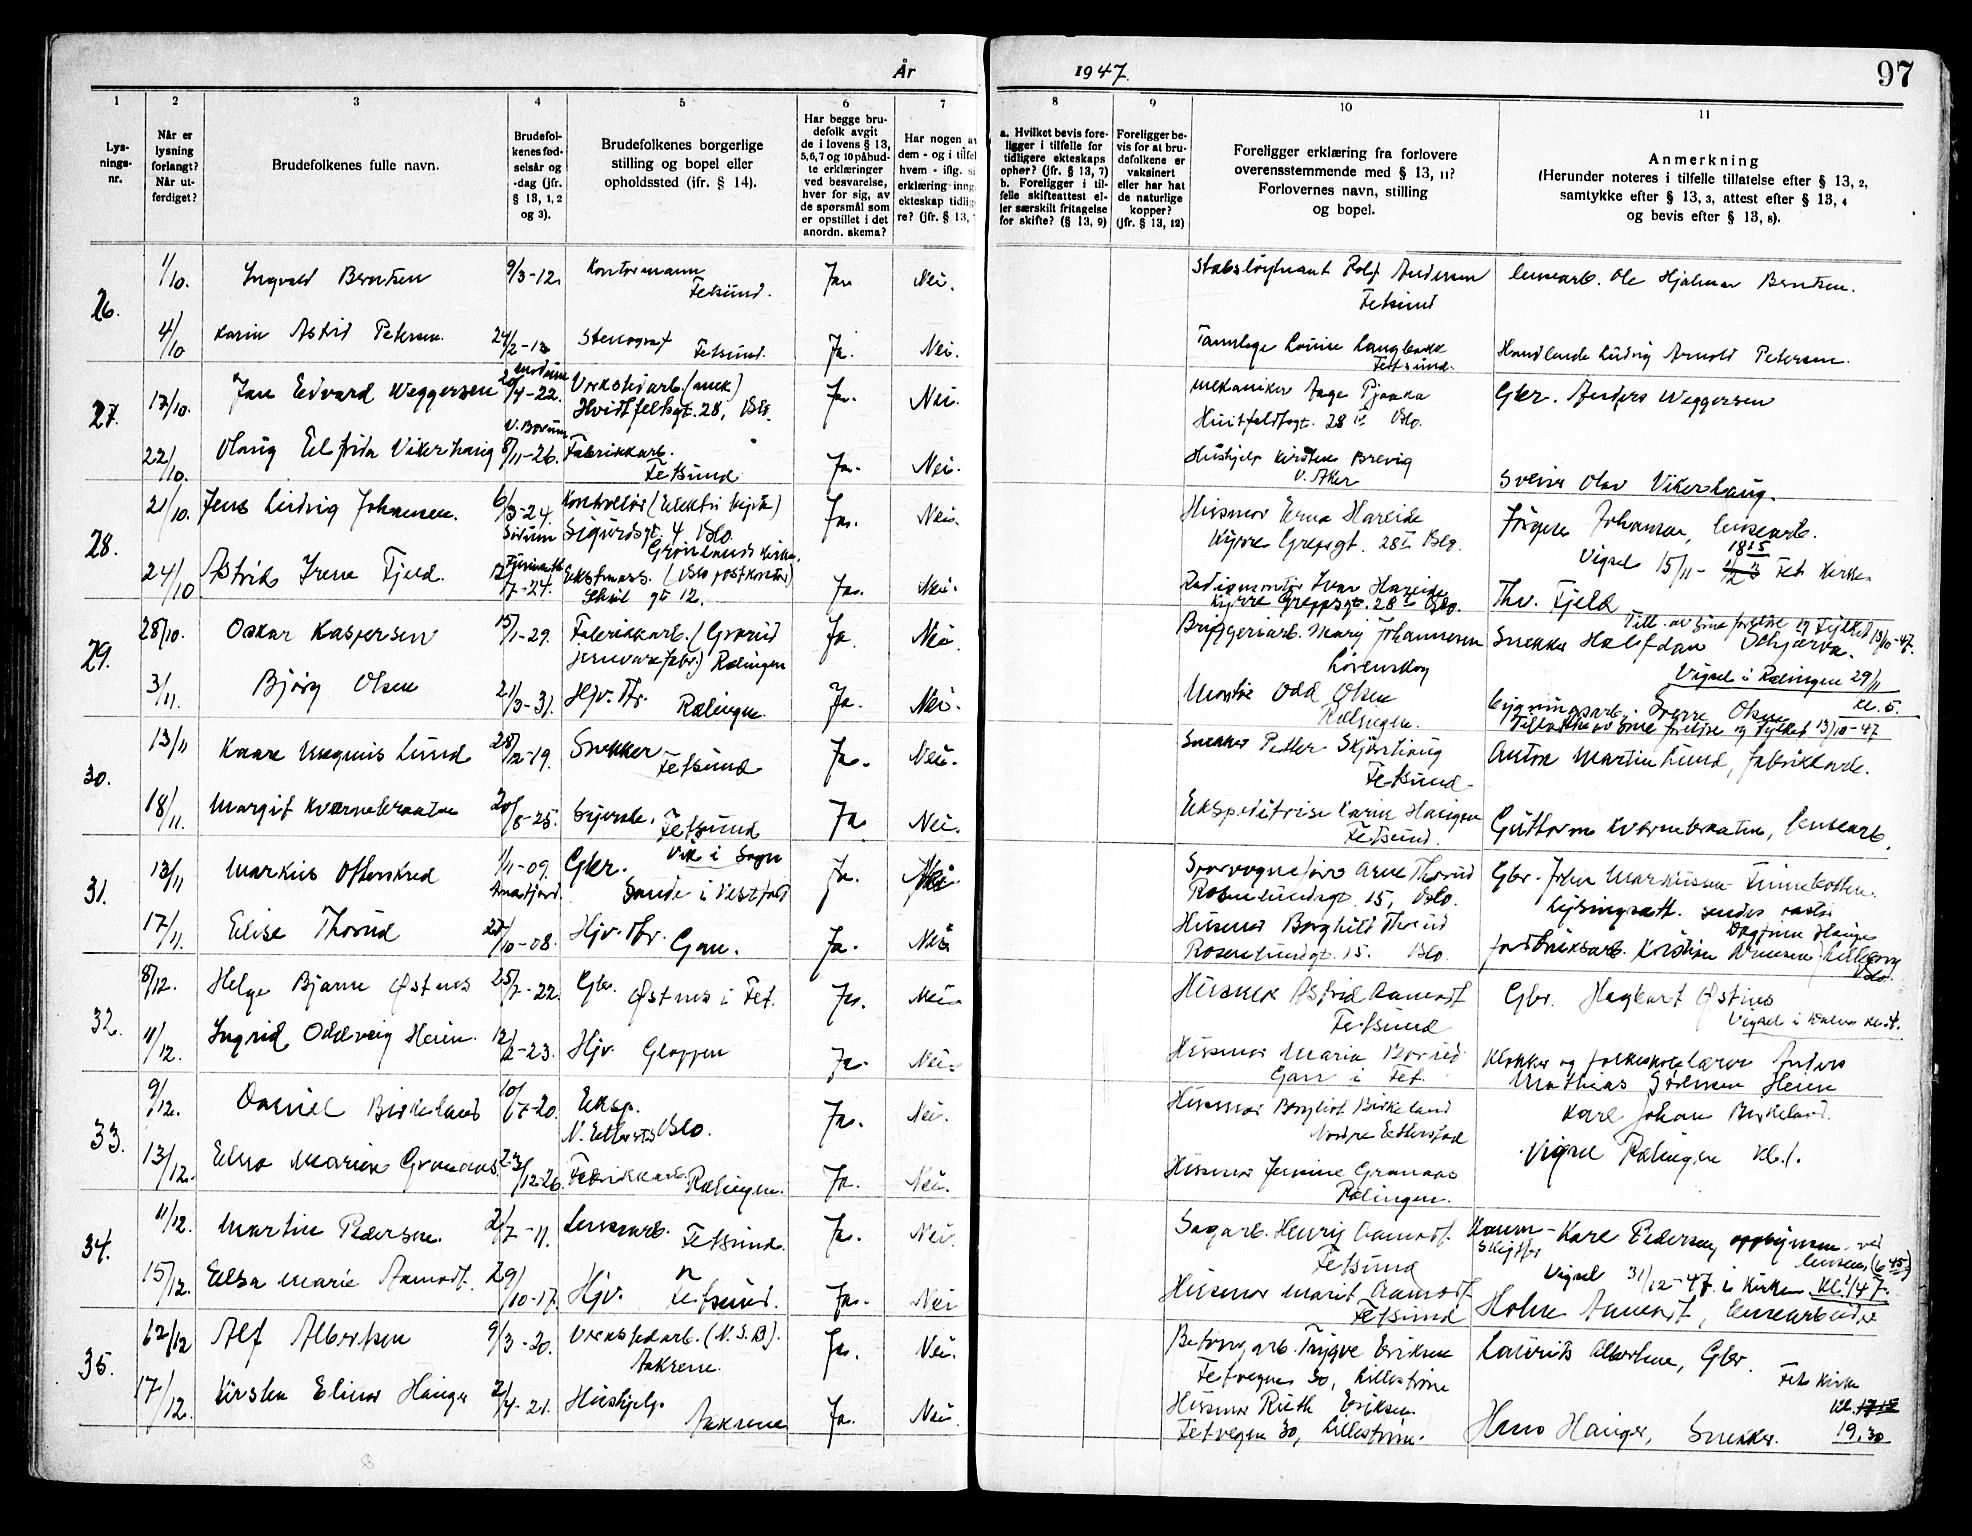 År 1947. 97
1 2 3 4 5 6 7 8 9 10 11
Lys-
nings-
nr.
Når er
lysning
forlangt?
Når ut-
ferdiget?
Brudefolkenes fulle navn.
Brudefol-
kenes fød-
selsår og
-dag (jfr.
§ 13, 1, 2
og 3).
Brudefolkenes borgerlige
stilling og bopel eller
opholdssted (ifr. § 14).
Har begge bru-
defolk avgit
de i lovens § 13,
5, 6, 7 og 10 påbud-
te erklæringer
ved besvarelse,
hver for sig, av
de spørsmål som
er opstillet i det
anordn. skema?
Har nogen av
dem - og i tilfel
hvem - iflg. si
erklæring inng
ekteskap tidlig
re? (jfr. § 13,
a. Hvilket bevis fore-
ligger i tilfelle for
tidligere ekteskaps
ophør? (jfr. § 13, 7)
b. Foreligger i til-
felle skifteattest el-
ler særskilt fritagelse
for skifte? (§ 13, 9)
Foreligger be-
vis for at bru-
defolkene er
vaksinert
eller har hat
de naturlige
kopper?
(jfr. § 13, 12)
Foreligger erklæring fra forlovere
overensstemmende med § 13, 11?
Forlovernes navn, stilling
og bopel.
Anmerkning
(Herunder noteres i tilfelle tillatelse efter § 13, 2,
samtykke efter § 13, 3, attest efter § 13, 4
og bevis efter § 13, 8).
26.
1/10. Ingvald Berntsen 9/3-12. Kontormann Fetsund. Ja Nei. Stabsløytnant Rolf Andersen Fetsund Lensearb. Ole Hjalmar Berntsen.
4/10 Karin Astrid Petersen 24/2-13 Stenograf Fetsund. Ja. Nei. Tannlege Louise Langbakk Fetsund. Handlende Ludvig Arnold Petersen.
27.
17/10. Jan Edvard Weggersen 20/4-22. Modum Verkstedarb. (mek)
Hvidtfeltsgt. 28, Oslo. Ja. Nei. Mekaniker Aage
Huitfeldtsgt. 28 Oslo. Gbr. Anders Weggersen
22/10. Olaug Elfrida Vikerhaug 8/11-26. Fabrikkarb.
Fetsund Ja. Nei. Hushjelp Kirsten Brevig
V. Aker Sverre Olav Vikerhaug.
28.
21/10. Jens Ludvig Johansen. 6/3-24. Sørum Kontrollør
Sigurdsgt. 4 Oslo
Grønlands kirke. Ja. Nei. Husmor Erna Hareide
Kjerre Grepsgt. 28 Oslo. Jørgen Johansen, lensearb.
Vigsel 15/11- 18 15 Fet Kirke
24/10 Astrid Irene Fjeld. 12/7-24. Ekspmass. (Oslo postkontor)
gt 12. Ja. Nei. Radiomontør Ivar Hareide
Kjerre Grepsgt. 28 Oslo. Thv. Fjeld
29.
28/10. Oskar Kaspersen 15/1-29. Fabrikkarb. (Grorud
jernvarefabr.) Rælingen Ja Nei. Bryggeriarb. Mary Johannesen
Lørenskog Till. av sine foreldre og Fylket 13/10-47.
Snekker Halfdan
Vigsel i Rælingen 29/11
kl. 5.
3/11. Bjørg Olsen 21/3-31. Hjv. dtr. Rælingen Ja. Nei. Montør Odd Olsen
Rælingen. Bygningsarb. Sverre Olsen
Tillatelse av sine foreldre og Fylket 13/10-47
30.
13/11 Kaare Magnus Lund 28/12-19. Snekker Fetsund Ja. Nei. Snekker Petter
Fetsund Anton Martin Lund, fabrikkarb.
18/11. Margit Kværnebraaten 20/8-25. Syerske. Fetsund Ja Nei. Ekspeditrise Karin Haugen
Fetsund. Guthorm Kværnebraaten, lensearb.
31.
13/11 Markus Otterskred 1/11-09. Gbr. Vik i Sogn
Sande i Vestfold Ja. Nei. Sporvognsfører Arne Thorud
Rosenlundsgt. 15, Oslo. Gbr. Johan Markussen
Lysningsatt. sendes pastor
Dagfinn Hauge
17/11. Elise Thorud 27/10-08. Hjv. dtr. Gan. Ja. Nei Husmor Borghild Thorud
Rosenlundgt. 15. Oslo. Kristian
Lilleborg
Oslo.
32.
8/12. Helge Bjarne Østnes 25/7-22. Gbr. Østnes i Fet. Ja. Nei. Husmor Astrid Aamodt
Fetsund Gbr. Hagbart Østnes
Vigsel i Dalen kl. 4.
11/12. Ingrid Oddveig Heien. 12/2-23. Hjv. Gloppen Ja. Nei. Husmor Maria Borud
Gan i Fet. Klokker og folkeskolelærer Anders
Mathias Sørensen Heien
33.
9/12. Daniel Birkeland 10/7-20. Eksp.
N. Etterstad Oslo. Ja. Nei. Husmor Bergliot Birkeland
Nordre Etterstad Karl Johan Birkeland.
13/12. Elna Marion Granaas 23/12-26. Fabrikkarb. Rælingen. Ja. Nei. Husmor Jensine Granaas
Rælingen. Vigsel Rælingen kl. 1.
34.
11/12. Martin Pedersen. 2/7-11. Lensearb. Fetsund. Ja. Nei. Sagarb. Henry Aamodt.
Fetsund Karl Pedersen, oppsynsm. ved
lensene
Vigsel 31/12-47. i Kirken
15/12. Elsa Marie Aamodt. 29/10-17. Hjv. Fetsund. Ja. Nei Husmor Marit Aamodt
Fetsund Aamodt, lensearbeider
35.
12/12 Alf Albertsen 9/3-20. Verkstedarb. (N.S.B).
Aakrene. Ja. Nei. Betongarb. Trygve Eriksen
Fetvegen 30, Lillestrøm Laurits Albertsen, Gbr.
Fet Kirke
17/12. Kirsten Elinor Hauger 21/4-21. Hushjelp
Aakrene Ja. Nei. Husmor Ruth Eriksen.
Fetvegen 30, Lillestrøm. Hans Hauger, Snekker.
kl.
19.30